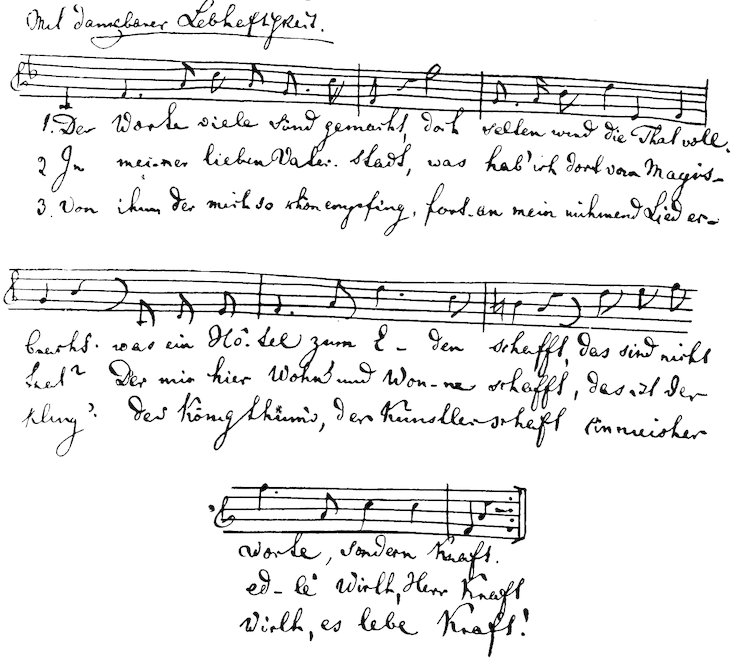 Mit dankbarer Lebhaftigkeit.
1. Der Worte viele sind gemacht, doch selten wird die That voll-
2 In meiner lieben Vater-stadt, was hab' ich dort vom Magis-
3. Von ihm der mich so schön empfing, fort-an mein rühmend Lied er-
bracht. was ein Hô-tel zum E-den schafft, das sind nicht
trat? Der mir hier Wohn' und Won-ne schafft, das ist der
kling'. des Königthum's, der Künstlerschaft
Worte, sondern Kraft.
ed-le Wirth, Herr Kraft
Wirth, es lebe Kraft!